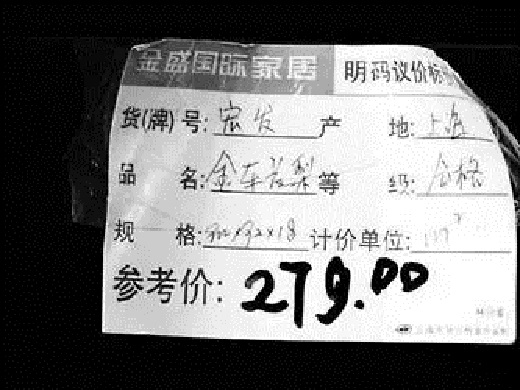 金盛国际家居 明码议价标
货(牌)号:宏发 产地:上海
品名:金车花梨 等级:合格
规格:910×92×18 计价单位:
参考价:279.00